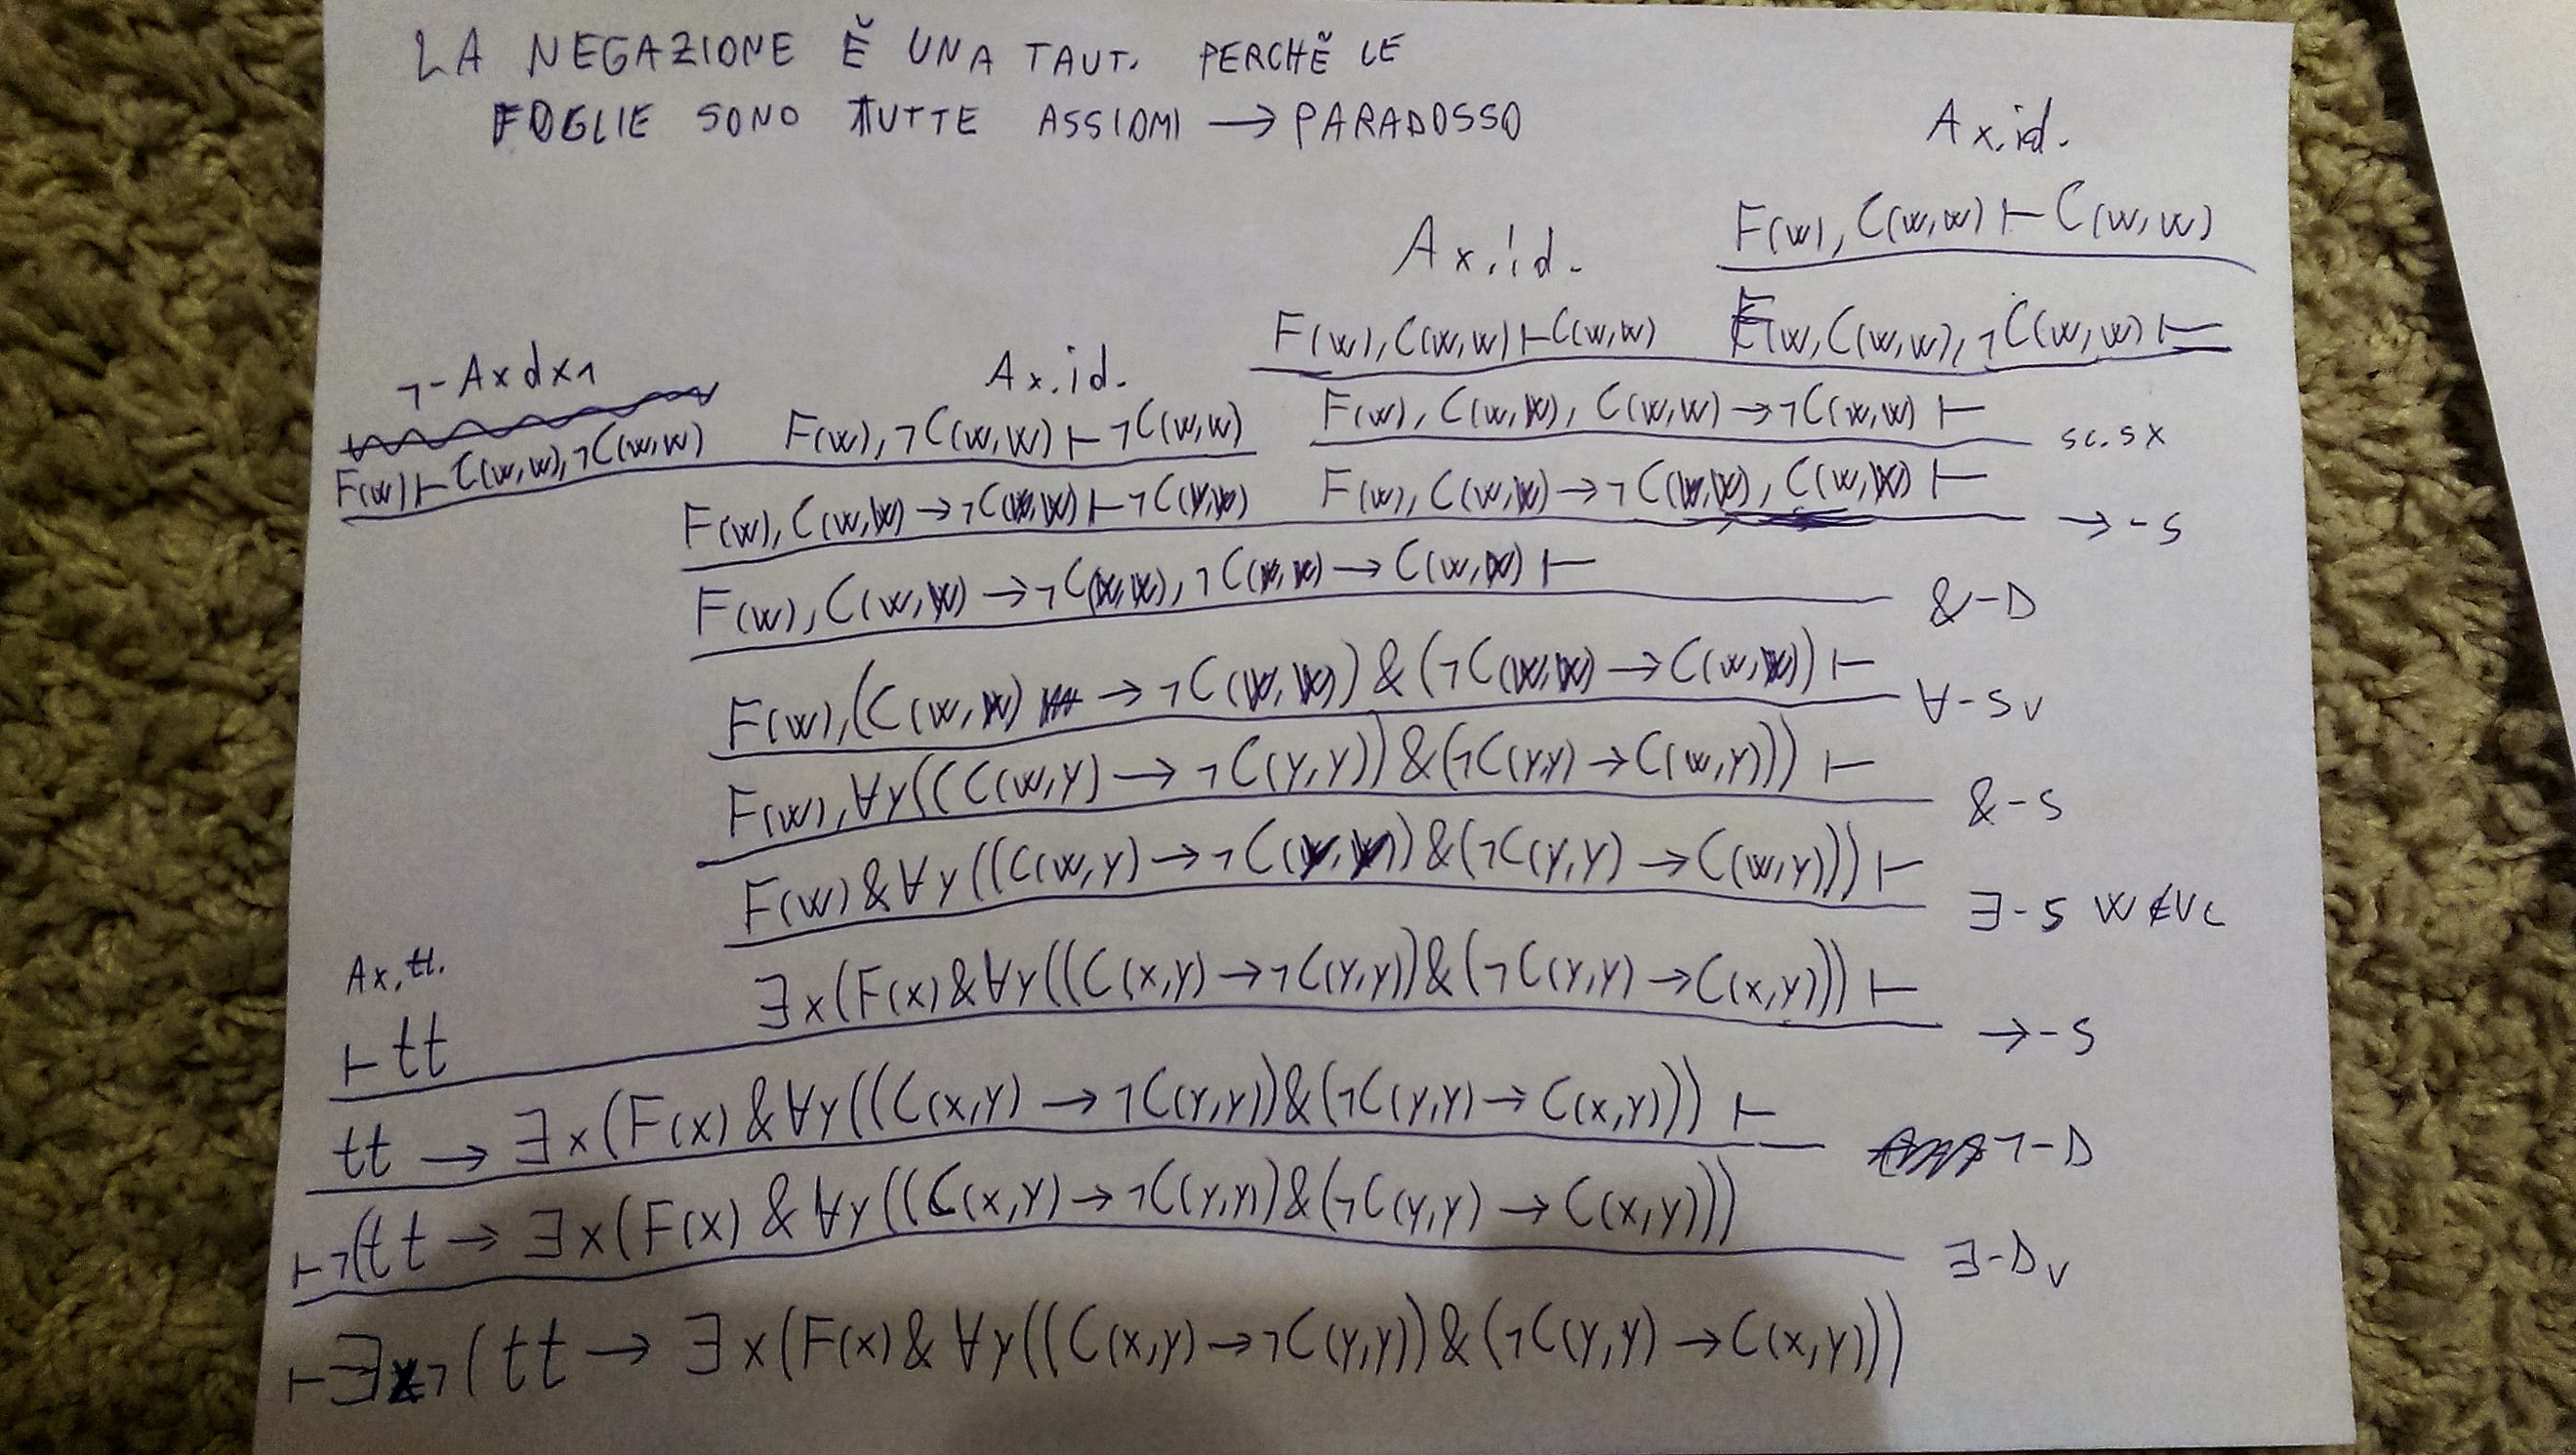 LA NEGAZIONE È UNA TAUT. PERCHÈ LE
FOGLIE SONO TUTTE ASSIOMI → PARADOSSO
Ax.id.
F(w), C(w,w) ⊢ C(w,w)
Ax.id.
F(w), C(w,w) ⊢ C(w,w) F(w, C(w,w), ¬C(w,w) ⊢
¬-Axdx1 Ax.id.
F(w) ⊢ C(w,w), ¬C(w,w) F(w), ¬C(w,w) ⊢ ¬C(w,w) F(w), C(w,w), C(w,w) → ¬C(w,w) ⊢ sc.sx
F(w), C(w,w) → ¬C(w,w) ⊢ ¬C(w,w) F(w), C(w,w) → ¬C(w,w), C(w,w) ⊢ →-S
F(w), C(w,w) → ¬C(w,w), ¬C(w,w) → C(w,w) ⊢ &-D
F(w), (C(w,w) → ¬C(w,w)) & (¬C(w,w) → C(w,w)) ⊢ ∀-Sv
F(w), ∀y((C(w,y) → ¬C(y,y)) & (¬C(y,y) → C(w,y))) ⊢ &-S
F(w) & ∀y((C(w,y) → ¬C(y,y)) & (¬C(y,y) → C(w,y))) ⊢ ∃-S w∉VL
Ax.tt.
∃x(F(x) & ∀y((C(x,y) → ¬C(y,y)) & (¬C(y,y) → C(x,y))) ⊢ →-S
⊢ tt
tt → ∃x(F(x) & ∀y((C(x,y) → ¬C(y,y)) & (¬C(y,y) → C(x,y))) ⊢ ¬-D
⊢ ¬(tt → ∃x(F(x) & ∀y((C(x,y) → ¬C(y,y)) & (¬C(y,y) → C(x,y))) ∃-Dv
⊢ ∃x¬(tt → ∃x(F(x) & ∀y((C(x,y) → ¬C(y,y)) & (¬C(y,y) → C(x,y)))